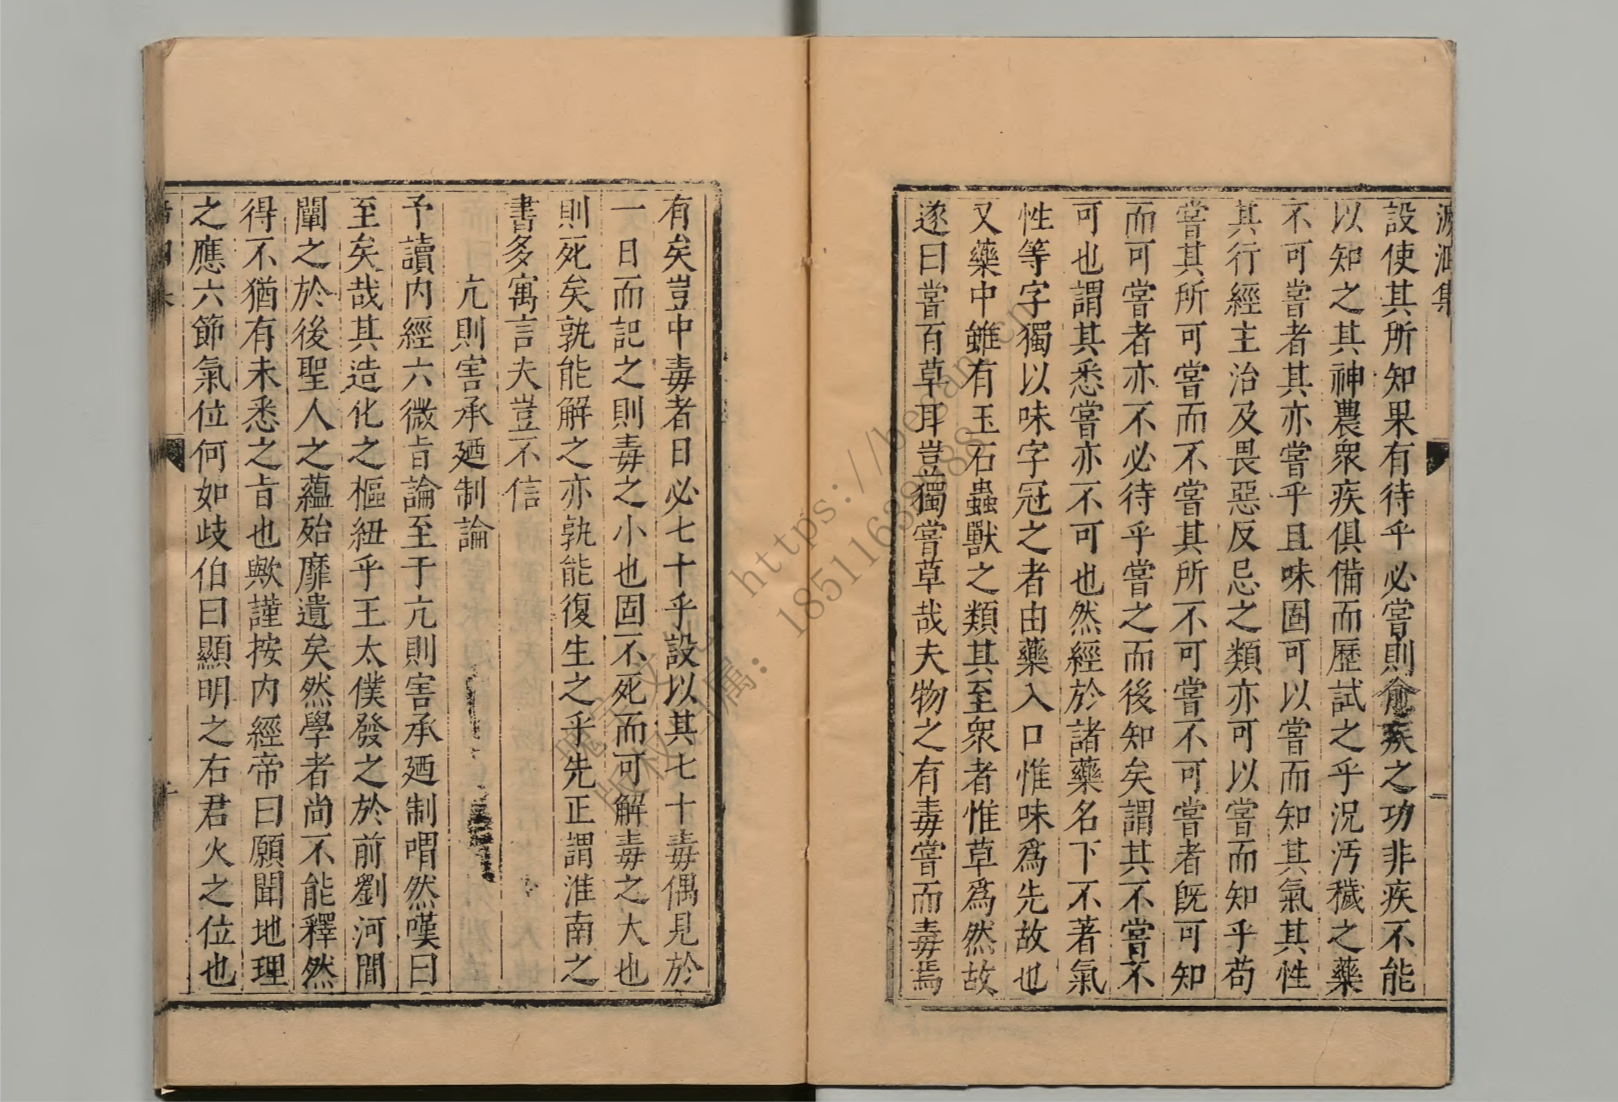 設使其所知果有待乎必嘗則愈疾之功非疾不能
以知之其神農衆疾俱備而歷試之乎況汚穢之藥
不可嘗者其亦嘗乎且味固可以嘗而知其氣其性
其行經主治及畏惡反忌之類亦可以嘗而知乎苟
嘗其所可嘗而不嘗其所不可嘗不可嘗者既可知
而可嘗者亦不必待乎嘗之而後知矣謂其不嘗不
可也謂其悉嘗亦不可也然經於諸藥名下不著氣
性等字獨以味字冠之者由藥入口惟味爲先故也
又藥中雖有玉石蟲獸之類其至衆者惟草爲然故
遂曰嘗百草耳豈獨嘗草哉夫物之有毒嘗而毒焉
有矣豈中毒者日必七十乎設以其七十毒偶見於
一日而記之則毒之小也固不死而可解毒之大也
則死矣孰能解之亦孰能復生之乎先正謂淮南之
書多寓言夫豈不信
亢則害承廼制論
予讀内經六微旨論至于亢則害承廼制喟然嘆曰
至矣哉其造化之樞紐乎王太僕發之於前劉河間
闡之於後聖人之蘊殆靡遺矣然學者尚不能釋然
得不猶有未悉之旨也歟謹按内經帝曰願聞地理
之應六節氣位何如歧伯曰顯明之右君火之位也
https://
18511638988